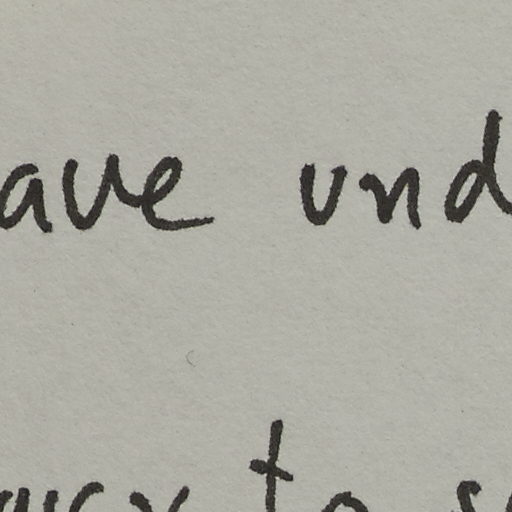 ave und
to s